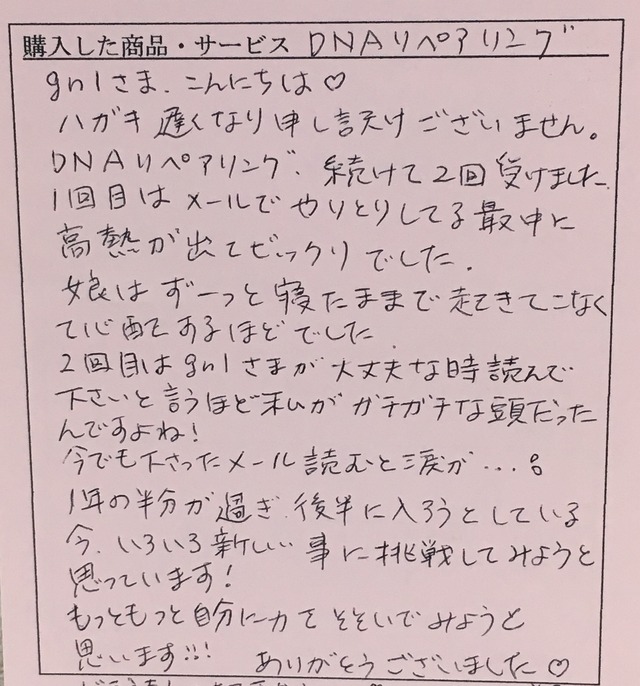 購入した商品・サービス DNAリペアリング
gnlさま、こんにちは♡
ハガキ遅くなり申し訳ございません。
DNAリペアリング、続けて2回受けました
1回目はメールでやりとりしてる最中に
高熱が出てビックリでした。
娘はずーっと寝たままで起きてこなく
て心配するほどでした
2回目はgnlさまが大丈夫な時読んで
下さいと言うほど私がガチガチな頭だった
んですよね!
今でも下さったメール読むと涙が...。
1年の半分が過ぎ、後半に入ろうとしている
今、いろいろ新しい事に挑戦してみようと
思っています!
もっともっと自分に力をそそいでみようと
思います!!! ありがとうございました♡